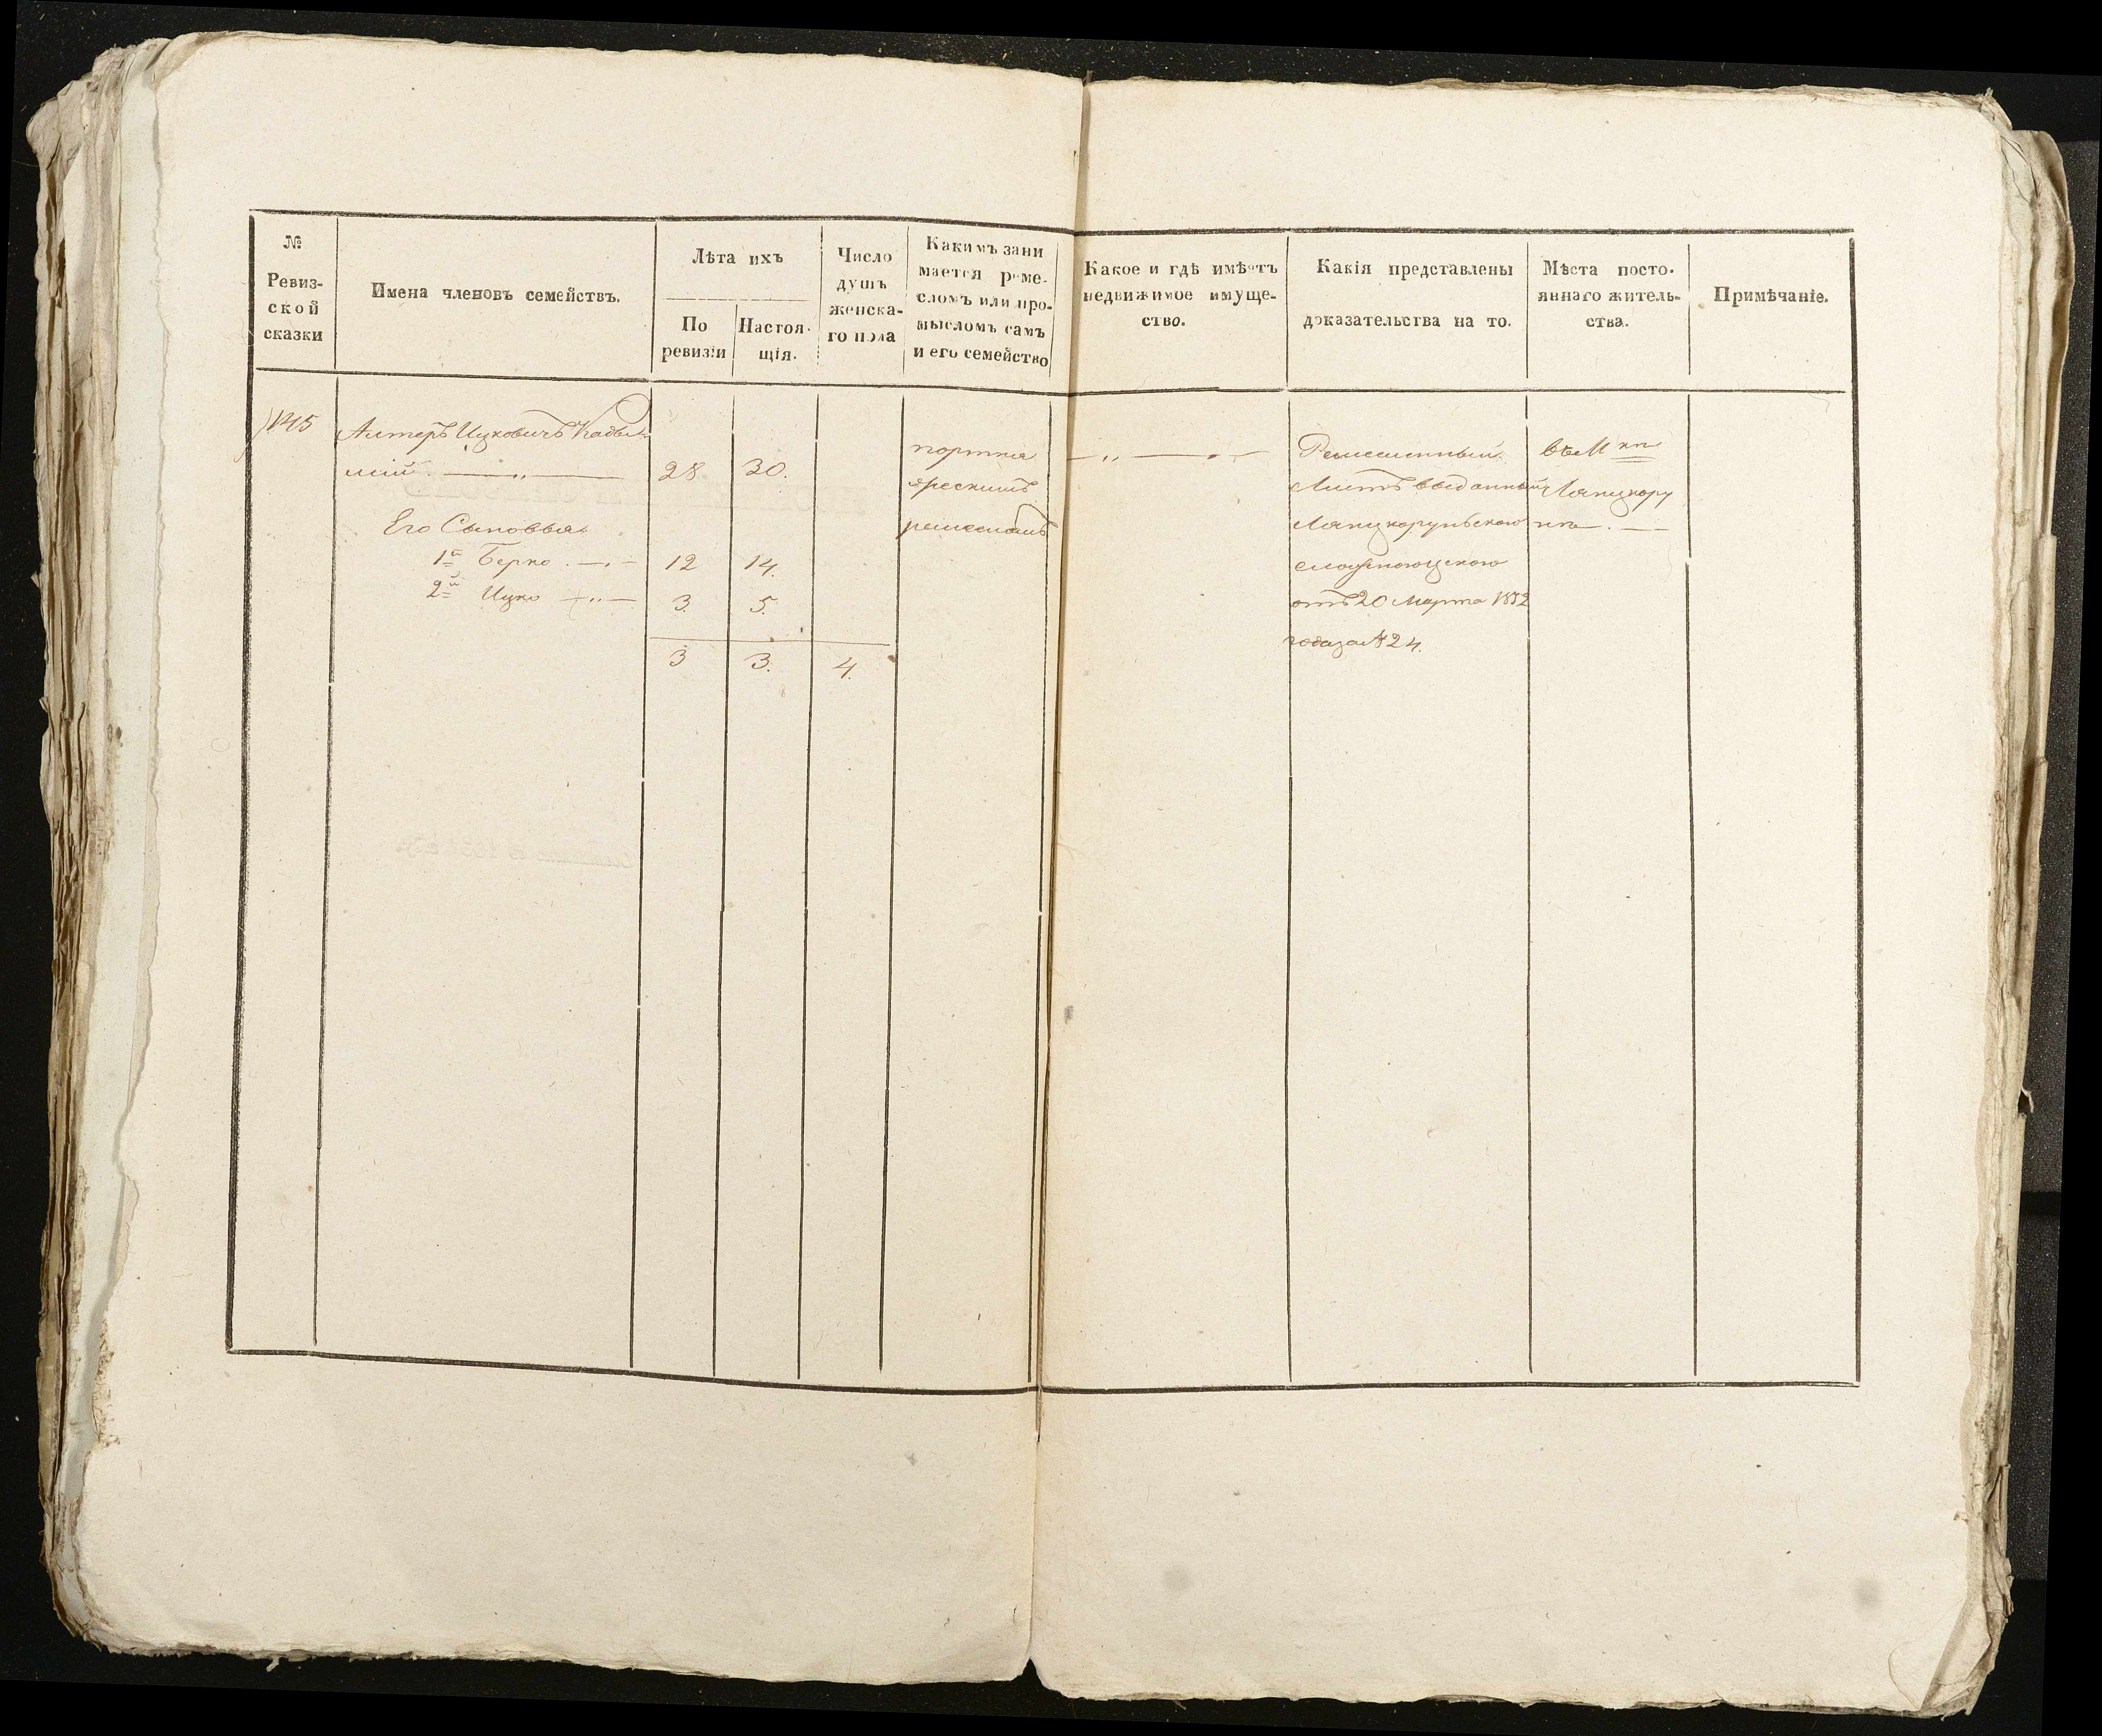 №
Ревиз-
ской
сказки
Имена членовъ семействъ.
Лѣта ихъ
По
ревизіи
Настоя-
щія.
Число
душъ
женска-
го пола
Какимъ зани
мается реме-
сломъ или про-
мысломъ самъ
и его семейство
Какое и гдѣ имѣетъ
недвижимое имуще-
ство.
Какія представлены
доказательства на то.
Мѣста посто-
яннаго житель-
ства.
Примѣчаніе.
145
Алтеръ Ицковичъ
28 30.
Его Сыновья
1й Берко 12 14.
2й Ицко 3. 5.
3 3. 4.
портня
ческимъ
ремесломъ
Ремесленный
Листъ выданный
Лянцкорунскаго
отъ 20 Марта 1852
года за № 24.
въ М
Лянцкору
нѣ